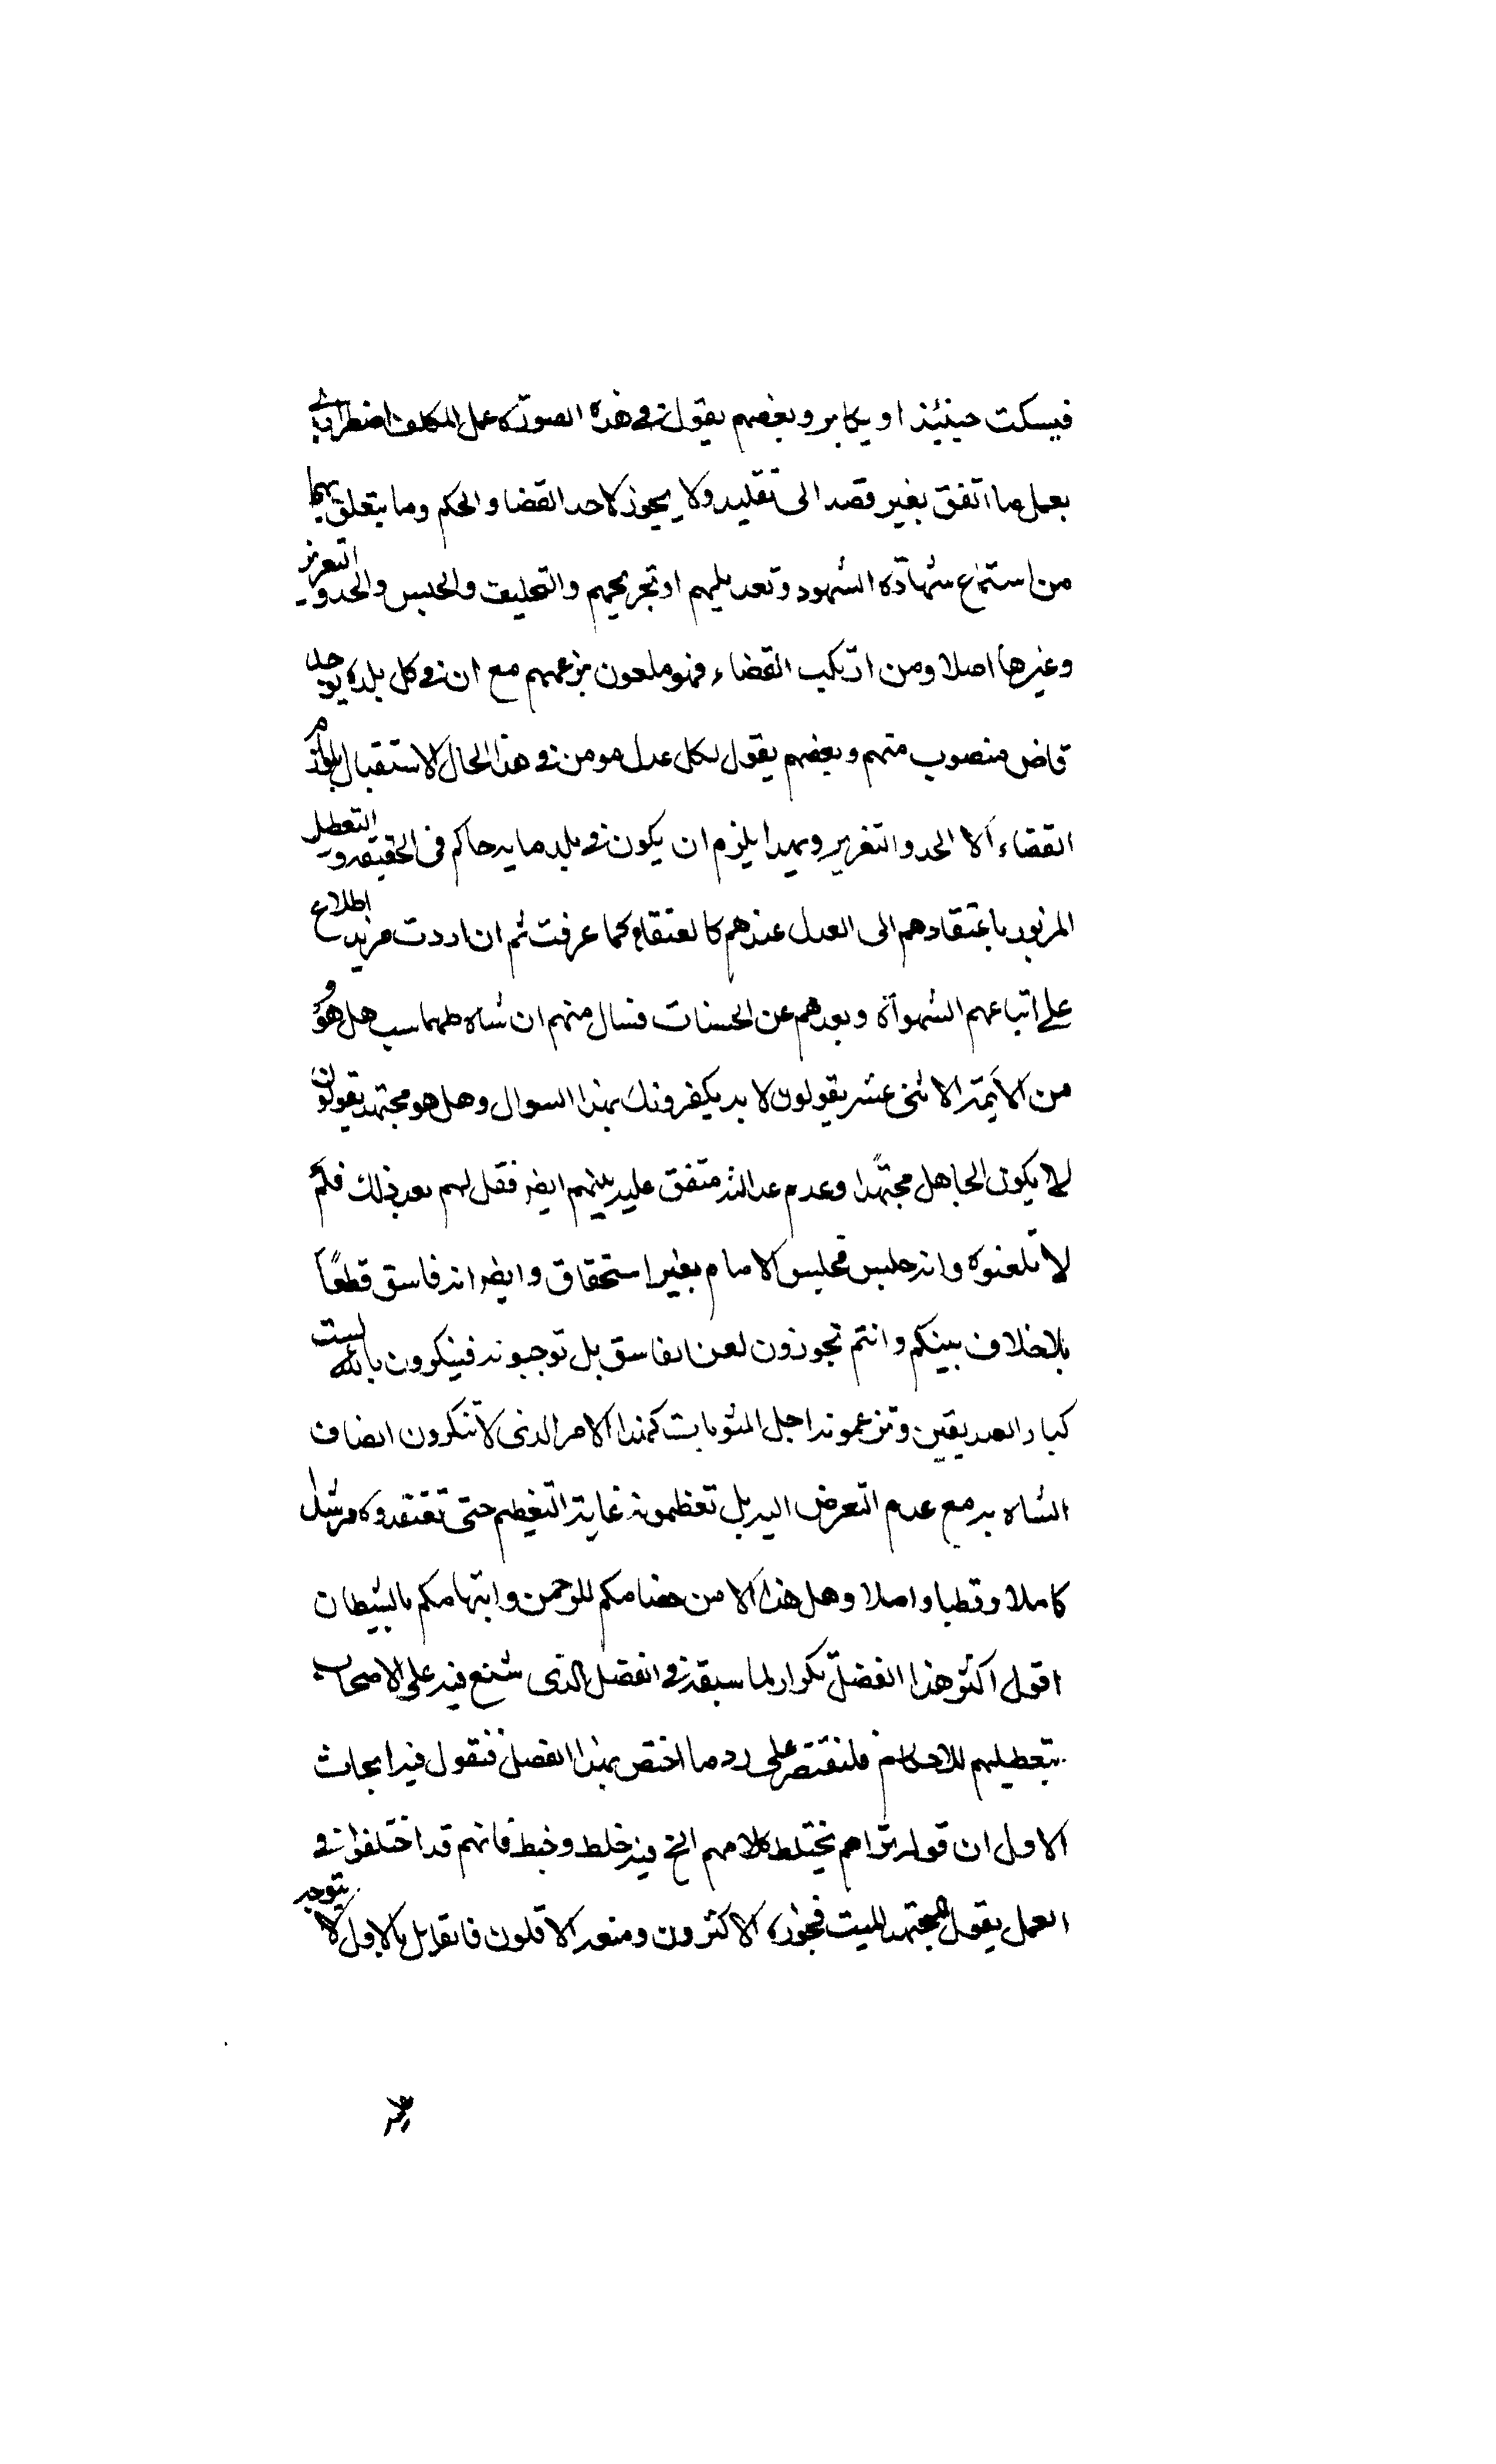 فيسكت حينئذ او يكابر وبعضهم يقول في هذه الصورة عمل المكلف اضطراري
بعمل ما اتفق بغير قصد الى تقليد ولا يجوز لاحد القضا والحكم وما يتعلق بهما
من استماع شهادة الشهود وتعديلهم او تجريحهم والتحليف والحبس والحد والتعزير
وغيرها اصلا ومن ارتكب القضاء فهو ملعون بزعمهم مع ان في كل بلدة يوجد
قاض منصوب منهم وبعضهم يقول لكل عدل مومن في هذا الحال الاستقبال بلوازم
القضاء الا الحد والتعزير وبهذا يلزم ان يكون في بلد ما يد حاكم في الحقيقة والتعطيل
المزبور باعتقادهم الى العدل عندهم كالعنقاء كما عرفت ثم ان اردت مزيد اطلاع
على اتباعهم الشهوات وبعدهم عن الحسنات فسال منهم ان شاه طهماسب هل هو
من الائمة الاثنى عشر يقولون لا بد يكفرونك بهذا السوال وهل هو مجتهد يقولون
لا يكون الجاهل مجتهدا وعدم عدالته متفق عليه بينهم ايضا فقل لهم بعد ذلك فلم
لا تلعنوه وانه جلس مجلس الامام بغير استحقاق وايضا انه فاسق قطعًا
بلا خلاف بينكم وانتم تجوزون لعن الفاسق بل توجبونه فينكرون بالله لست
كبار الصديقين وتزعمونه اجل المثوبات كهذا الامر الذى لا تنكرون اتصاف
الشاه به مع عدم التعرض اليه بل تعظمونه غاية التعظيم حتى تعتقدوه مرشدا
كاملا وقطبا واصلا وهل هذا الا من خصامكم للرحمن وابتهامكم بالشيطان
اقول اكثر هذا الفصل تكرار لما سبقه في الفصل الذى شنع فيه على الاصحاب
بتعطيلهم للاحكام فلنقتصر على رد ما اختص بهذا الفصل فنقول فيه ابحاث
الاول ان قوله تراهم يختلط كلامهم الخ فيه خلط وخبط فانهم قد اختلفوا في
العمل بقول المجتهد الميت فجوزه الاكثرون ومنعه الاقلون فالقايل بالاول لا يتوجه